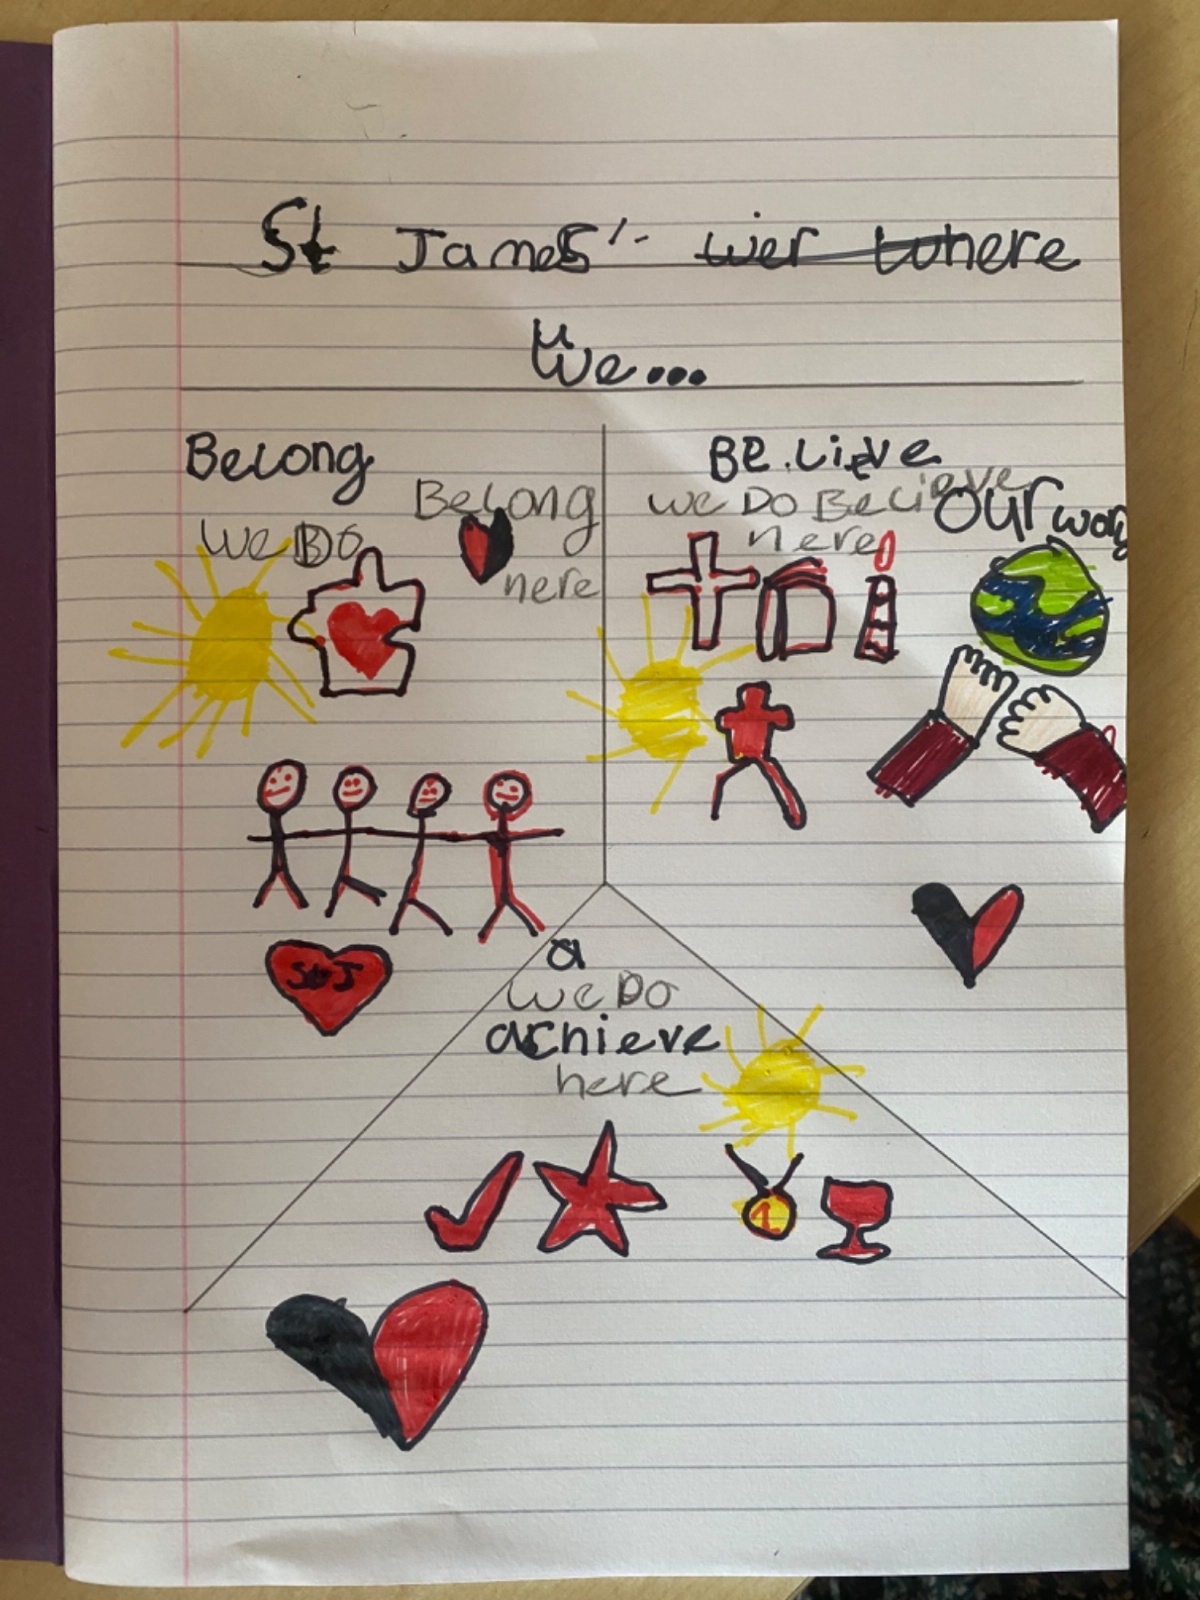 St James' - wer where
we...
Belong
We Do
Belong
here
Be.lieve
we Do Believe
here
our
St J
a
we Do
achieve
here
1